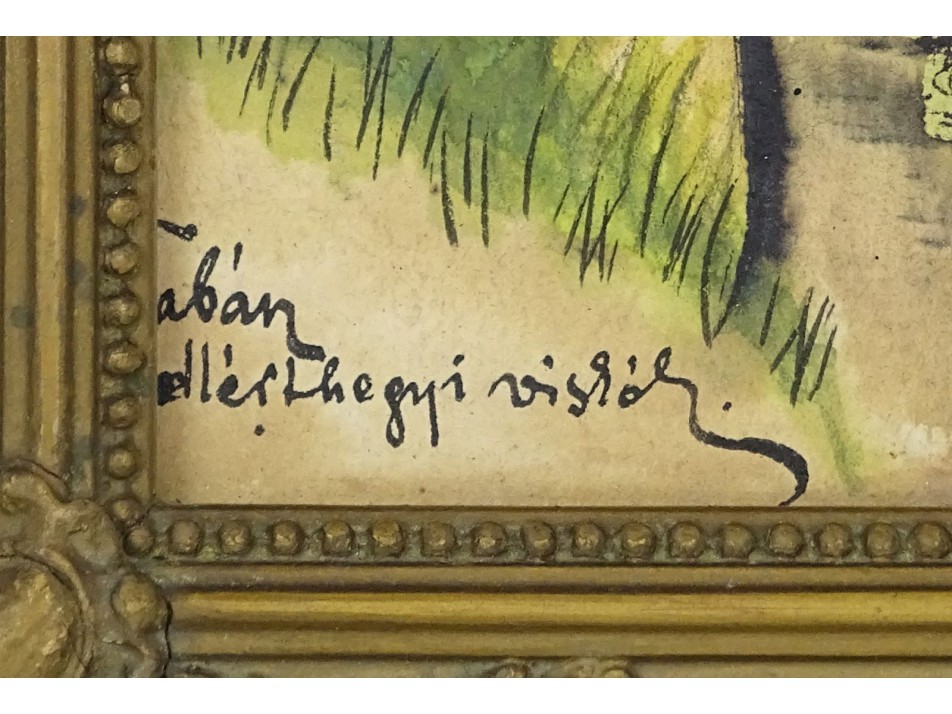 abán
ellérthegyi viskók.